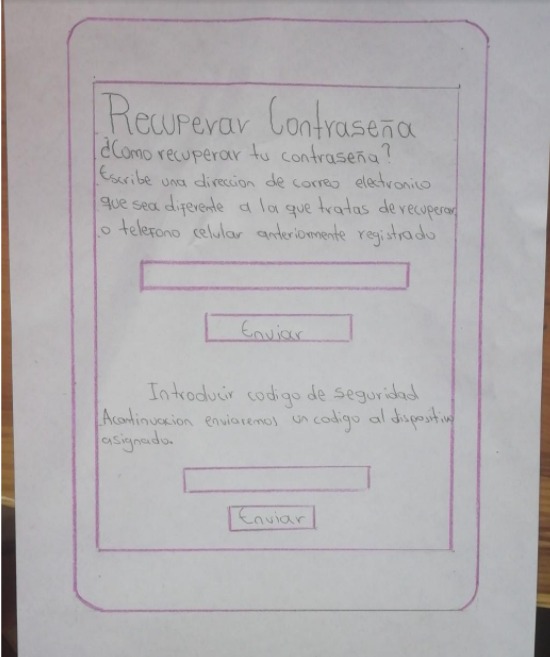 Recuperar Contraseña
¿Como recuperar tu contraseña?
Escribe una direccion de correo electronico
que sea diferente a la que tratas de recuperar
o telefono celular anteriormente registrado
Enviar
Introducir codigo de seguridad
Acontinuacion enviaremos un codigo al dispositivo
asignado.
Enviar